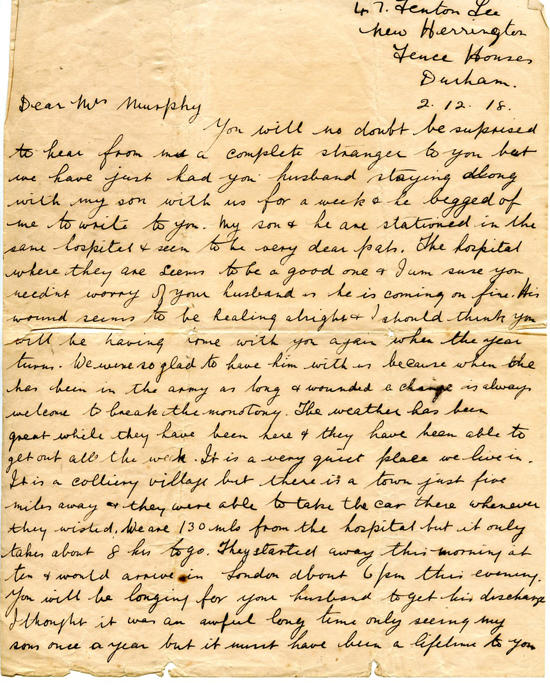 47. Fenton Lee
New Herrington
Fence Houses
Durham.
Dear Mrs Murphy 2.12.18.
You will no doubt be suprised
to hear from me a complete stranger to you but
we have just had you husband staying along
with my son with us for a week & he begged of
me to write to you. My son & he are stationed in the
same hospital & seem to be very dear pals. The hospital
where they are seems to be a good one & I am sure you
needn't worry of your husband as he is coming on fine. His
wound seems to be healing alright & I should think you
will be having him home with you again when the year
turns. We were so glad to have him with us because when one
has been in the army as long & wounded a change is always
welcome to break the monotony. The weather has been
great while they have been here & they have been able to
get out all the week. It is a very quiet place we live in.
It is a colliery village but there is a town just five
miles away & they were able to take the car there whenever
they wished. We are 130 mls from the hospital but it only
takes about 8 hrs to go. They started away this morning at
ten & would arrive in London about 6 pm this evening.
You will be longing for your husband to get his discharge
I thought it was an awful long time only seeing my
sons once a year but it must have been a lifetime to you